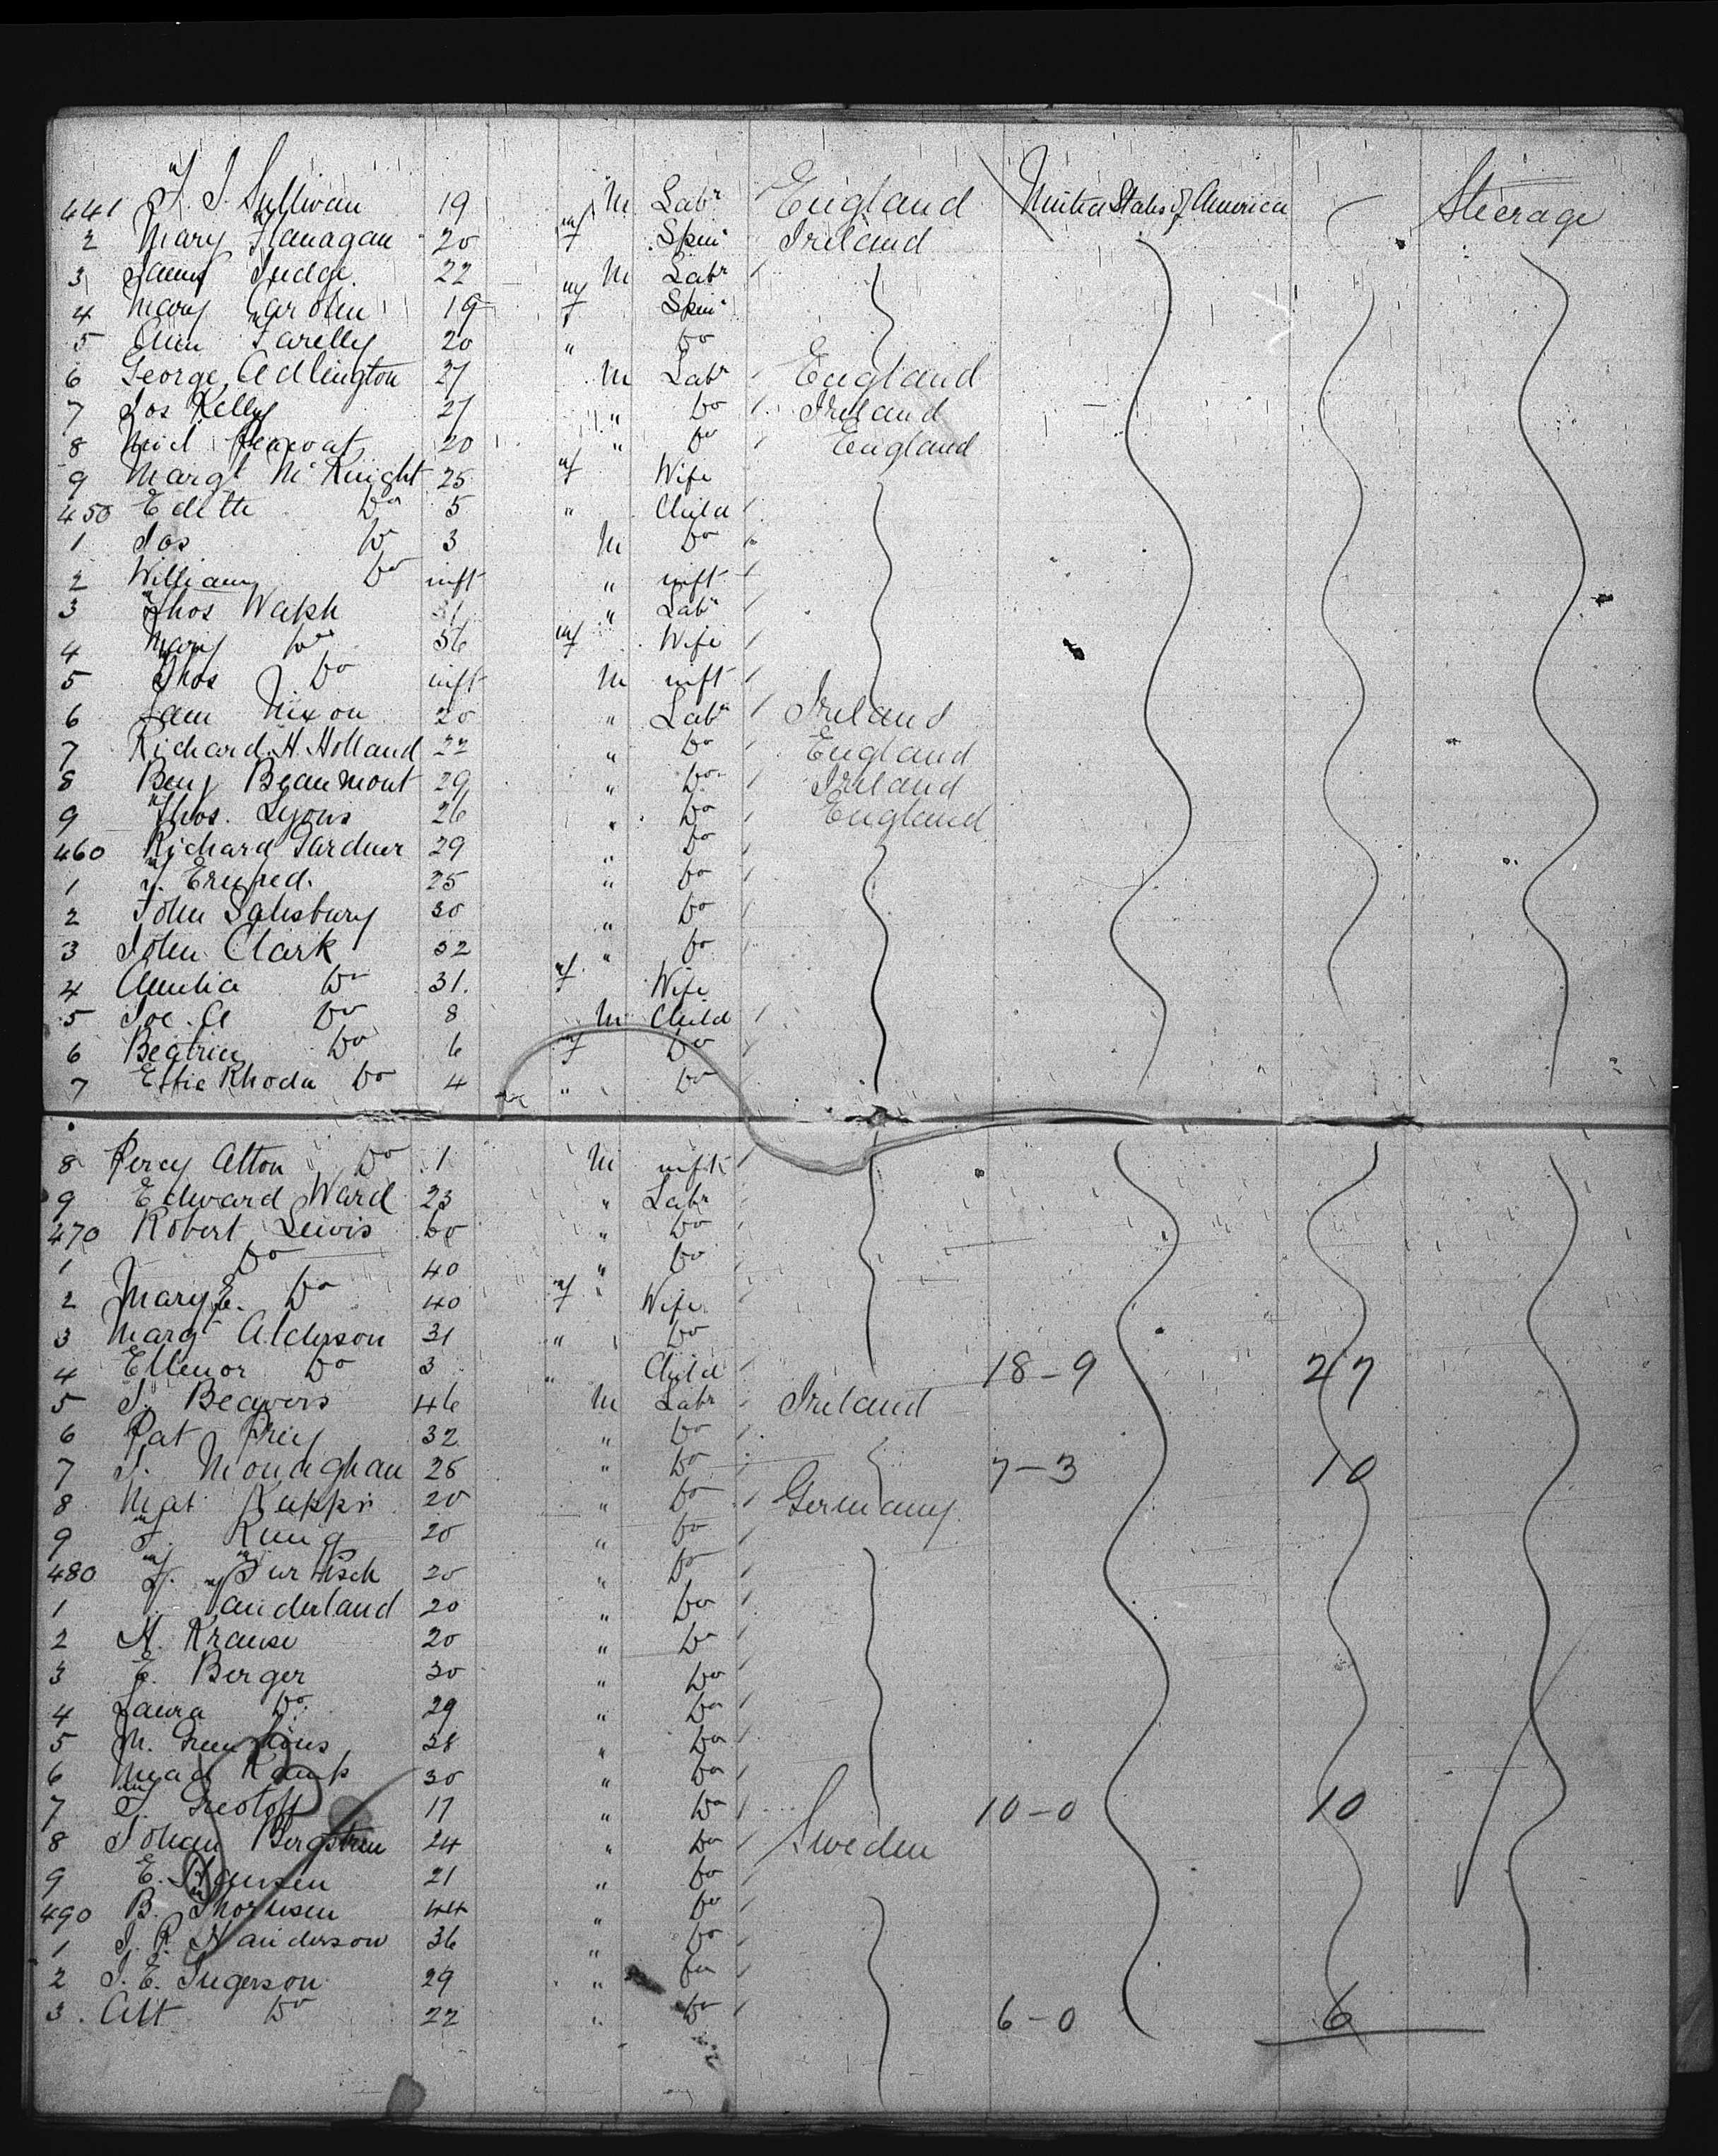 441 T. J. Sullivan 19 M Labr England United States of America Steerage
2 Mary Flanagan 20 f Spinr Ireland
3 James Judge 22 M Labr
4 Mary Carolin 19 f Spinr
5 Ann Farelly 20 " Do
6 George Adlington 27 M Labr England
7 Jos Kelly 27 " Do Ireland
8 20 " Do England
9 Margt McKnight 25 f Wife
450 Edith Do 5 " Child
1 Jos Do 3 M Do
2 William Do inft " inft
3 Thos Walsh 31 " Labr
4 Mary Do 36 f Wife
5 Thos Do inft M inft
6 Sam Nixon 20 " Labr Ireland
7 Richard H. Holland 22 " Do England
8 Benj Beaumont 29 " Do Ireland
9 Thos. Lyons 26 " Do England
460 Richard Gardner 29 " Do
1 25 " Do
2 John Salisbury 30 " Do
3 John Clark 32 " Do
4 Amelia Do 31. f Wife
5 Joe. A Do 8 M Child
6 Beatrice Do 6 f Do
7 Effie Rhoda Do 4 " Do
8 Percy Alton Do 1 M inft
9 Edward Ward 23 " Labr
470 Robert Lewis 60 " Do
1 Do 40 " Do
2 Mary E. Do 40 f Wife
3 Margt Alderson 31 " Do
4 Ellenor Do 3 " Child 18-9 27
5 J. Beavers 46 M Labr Ireland
6 Pat 32 " Do
7 J. Monaghan 25 " Do 7-3 10
8 Mat 20 " Do Germany
9 20 " Do
480 20 " Do
1 20 " Do
2 H. Krause 20 " Do
3 E. Berger 30 " Do
4 Laura Do 29 " Do
5 M. 28 " Do
6 30 " Do
7 17 " Do 10-0 10
8 Johan Bergstrom 24 " Do Sweden
9 E. Hansen 21 " Do
490 B. Thornsen 44 " Do
1 36 " Do
2 J. E. Ingerson 29 " Do
3 Do 22 " Do 6-0 6